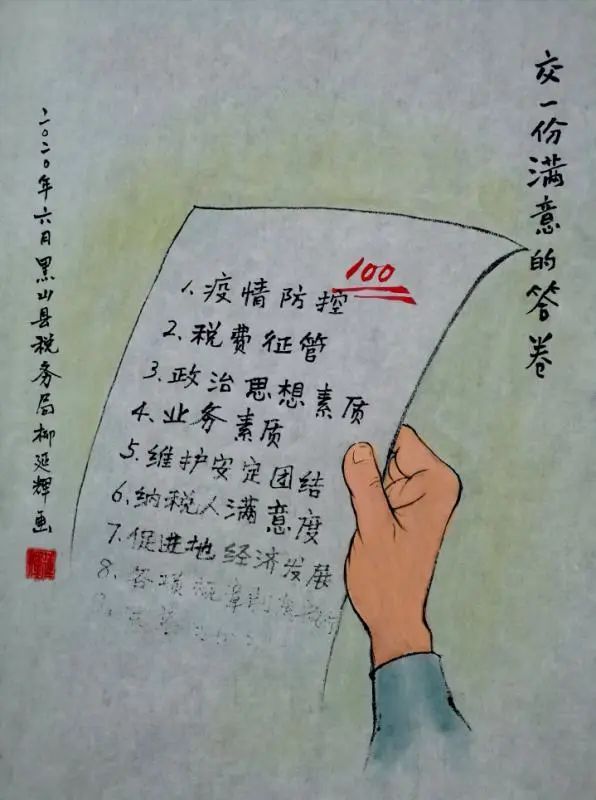 交一份满意的答卷
100
1、疫情防控
2、税费征管
3、政治思想素质
4、业务素质
5、维护安定团结
6、纳税人满意度
7、促进地经济发展
8、各项规章制度
二〇二〇年六月黑山县税务局柳延辉画